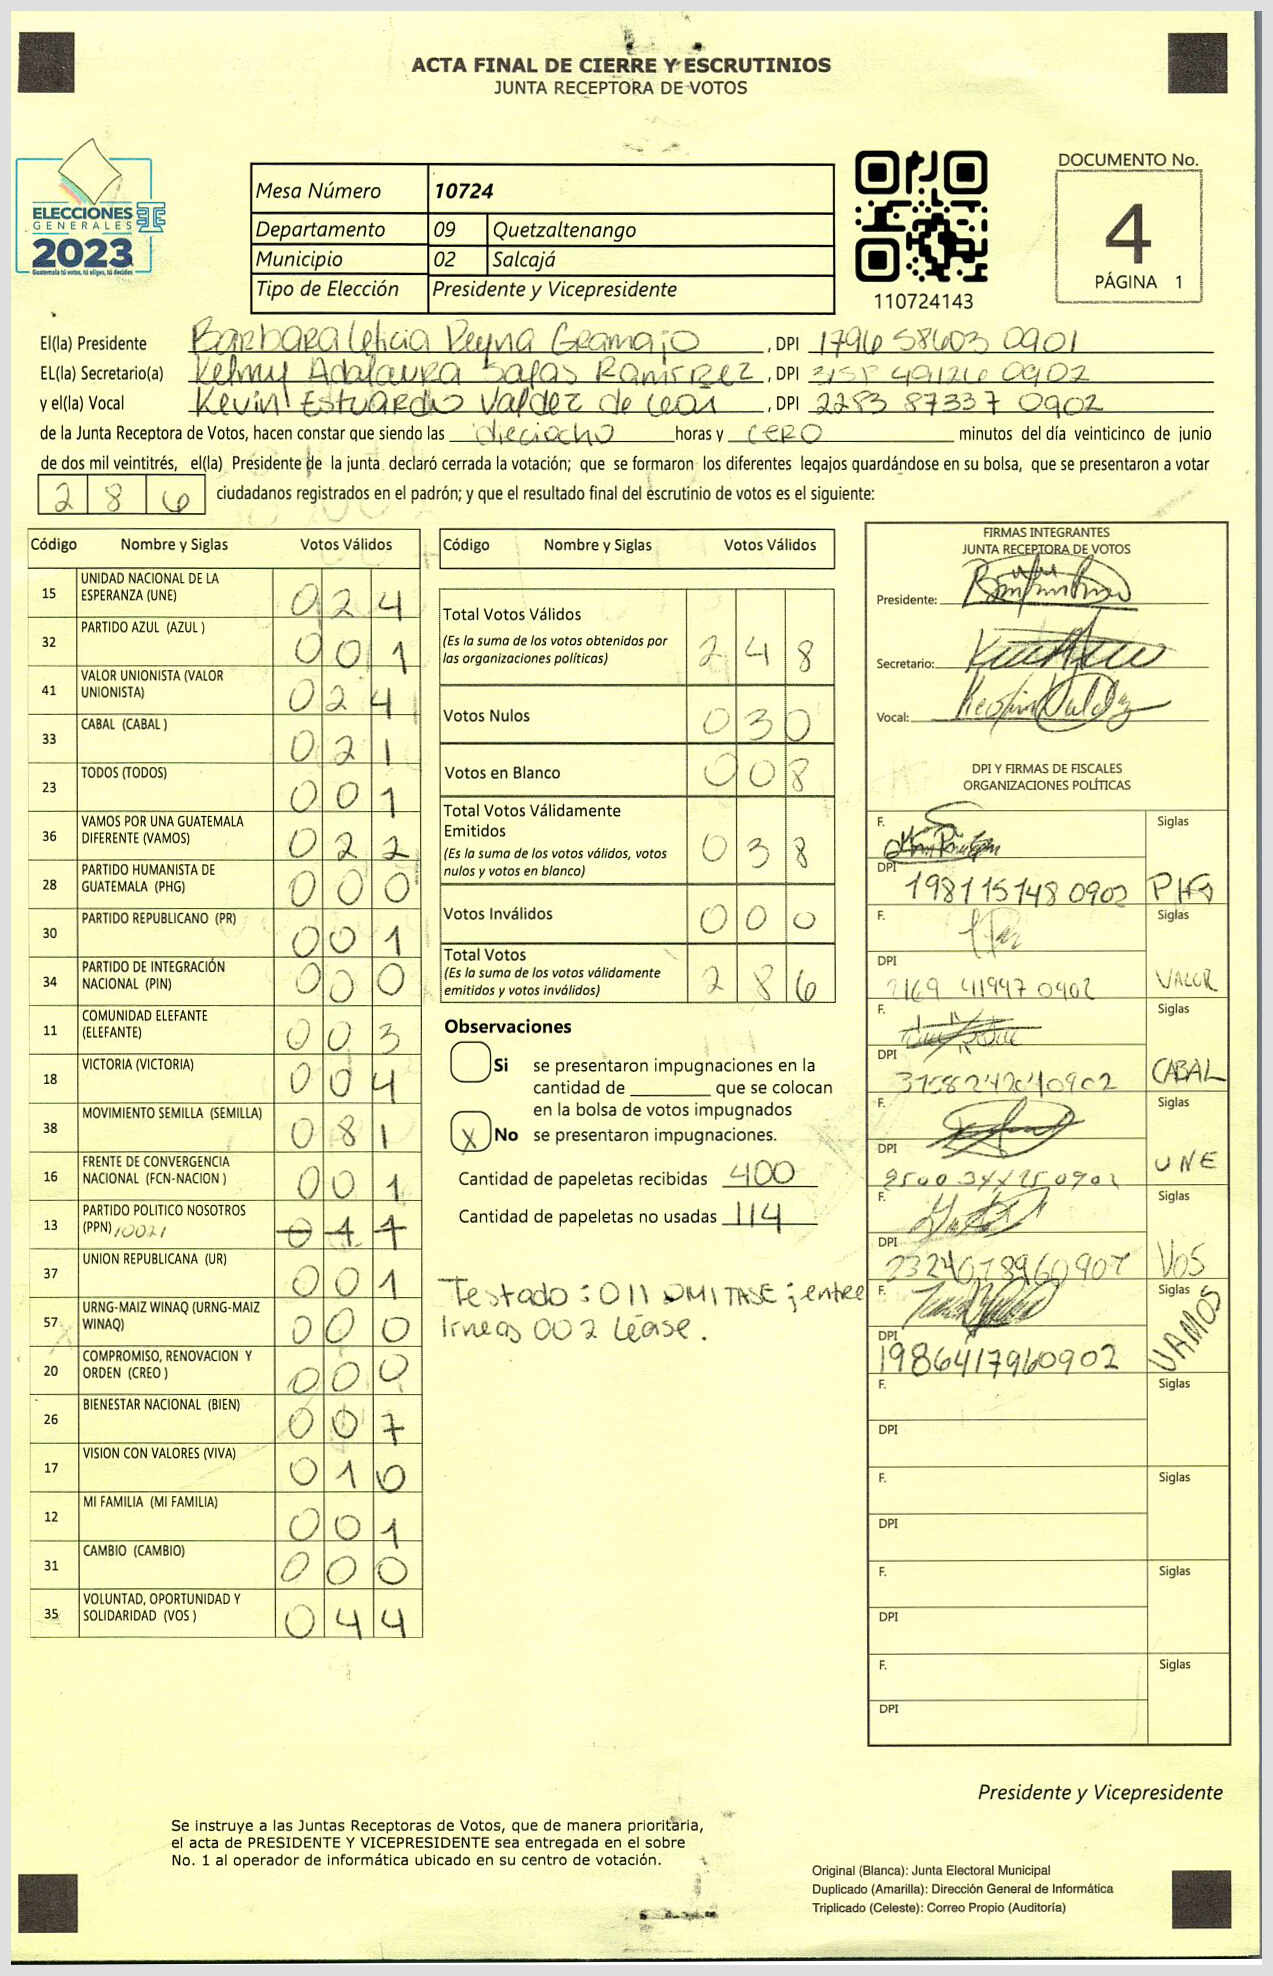 ACTA FINAL DE CIERRE Y ESCRUTINIOS
JUNTA RECEPTORA DE VOTOS
ELECCIONES
GENERALES
2023
Guatemala tú votas, tú eliges, tú decides
Mesa Número 10724
Departamento 09 Quetzaltenango
Municipio 02 Salcajá
Tipo de Elección Presidente y Vicepresidente
110724143
DOCUMENTO No.
4
PÁGINA 1
El(la) Presidente Barbara Leticia Reyna Gramajo, DPI 1796 58603 0901
EL(la) Secretario(a) Kelmy Adalaura Sajas Ramirez, DPI 0902
y el(la) Vocal Kevin Estuardo Valdez de León, DPI 2283 87337 0902
de la Junta Receptora de Votos, hacen constar que siendo las dieciocho horas y cero minutos del día veinticinco de junio
de dos mil veintitrés, el(la) Presidente de la junta declaró cerrada la votación; que se formaron los diferentes legajos quardándose en su bolsa, que se presentaron a votar
2 8 6 ciudadanos registrados en el padrón; y que el resultado final del escrutinio de votos es el siguiente:
Código Nombre y Siglas Votos Válidos
15 UNIDAD NACIONAL DE LA ESPERANZA (UNE) 0 2 4
32 PARTIDO AZUL (AZUL ) 0 0 1
41 VALOR UNIONISTA (VALOR UNIONISTA) 0 2 4
33 CABAL (CABAL ) 0 2 1
23 TODOS (TODOS) 0 0 1
36 VAMOS POR UNA GUATEMALA DIFERENTE (VAMOS) 0 2 2
28 PARTIDO HUMANISTA DE GUATEMALA (PHG) 0 0 0
30 PARTIDO REPUBLICANO (PR) 0 0 1
34 PARTIDO DE INTEGRACIÓN NACIONAL (PIN) 0 0 0
11 COMUNIDAD ELEFANTE (ELEFANTE) 0 0 3
18 VICTORIA (VICTORIA) 0 0 4
38 MOVIMIENTO SEMILLA (SEMILLA) 0 8 1
16 FRENTE DE CONVERGENCIA NACIONAL (FCN-NACION ) 0 0 1
13 PARTIDO POLITICO NOSOTROS (PPN) 10021 0 1 1
37 UNION REPUBLICANA (UR) 0 0 1
57 URNG-MAIZ WINAQ (URNG-MAIZ WINAQ) 0 0 0
20 COMPROMISO, RENOVACION Y ORDEN (CREO ) 0 0 0
26 BIENESTAR NACIONAL (BIEN) 0 0 7
17 VISION CON VALORES (VIVA) 0 1 0
12 MI FAMILIA (MI FAMILIA) 0 0 1
31 CAMBIO (CAMBIO) 0 0 0
35 VOLUNTAD, OPORTUNIDAD Y SOLIDARIDAD (VOS ) 0 4 4
Código Nombre y Siglas Votos Válidos
Total Votos Válidos 2 4 8
(Es la suma de los votos obtenidos por
las organizaciones políticas)
Votos Nulos 0 3 0
Votos en Blanco 0 0 8
Total Votos Válidamente
Emitidos 0 3 8
(Es la suma de los votos válidos, votos
nulos y votos en blanco)
Votos Inválidos 0 0 0
Total Votos 2 8 6
(Es la suma de los votos válidamente
emitidos y votos inválidos)
Observaciones
Si se presentaron impugnaciones en la
cantidad de ________ que se colocan
en la bolsa de votos impugnados
X No se presentaron impugnaciones.
Cantidad de papeletas recibidas 400
Cantidad de papeletas no usadas 114
Testado: 011 OMITASE; entre
lineas 002 Léase.
FIRMAS INTEGRANTES
JUNTA RECEPTORA DE VOTOS
Presidente:
Secretario:
Vocal:
DPI Y FIRMAS DE FISCALES
ORGANIZACIONES POLÍTICAS
F. Siglas
DPI 198115148 0902 PHG
F. Siglas
DPI 2169 41947 0902 VALOR
F. Siglas
DPI CABAL
F. Siglas
DPI UNE
F. Siglas
DPI VOS
F. Siglas
DPI 1986417960902 VAMOS
F. Siglas
DPI
F. Siglas
DPI
F. Siglas
DPI
F. Siglas
DPI
Presidente y Vicepresidente
Se instruye a las Juntas Receptoras de Votos, que de manera prioritaria,
el acta de PRESIDENTE Y VICEPRESIDENTE sea entregada en el sobre
No. 1 al operador de informática ubicado en su centro de votación.
Original (Blanca): Junta Electoral Municipal
Duplicado (Amarilla): Dirección General de Informática
Triplicado (Celeste): Correo Propio (Auditoría)